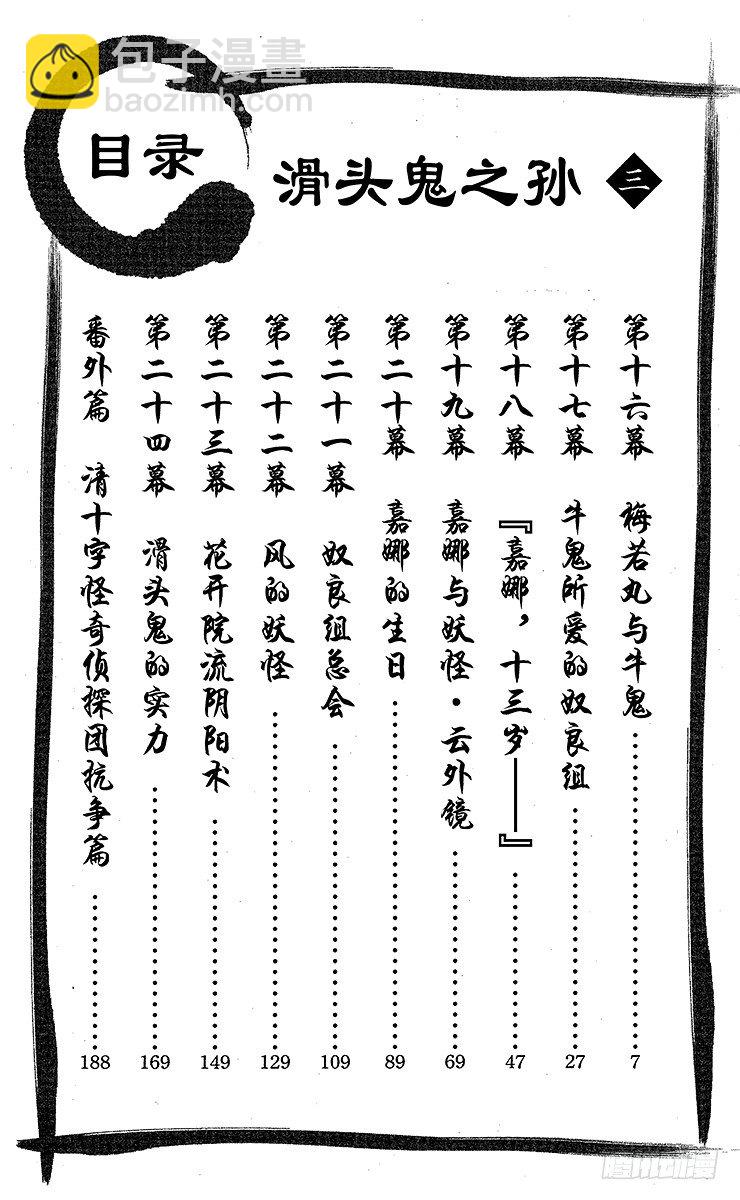 包子漫畫
baozimh.com
目录
滑头鬼之孙 三
第十六幕 梅若丸与牛鬼 7
第十七幕 牛鬼所爱的奴良组 27
第十八幕 『嘉娜，十三岁——』 47
第十九幕 嘉娜与妖怪·云外镜 69
第二十幕 嘉娜的生日 89
第二十一幕 奴良组总会 109
第二十二幕 风的妖怪 129
第二十三幕 花开院流阴阳术 149
第二十四幕 滑头鬼的实力 169
番外篇 清十字怪奇侦探团抗争篇 188
腾讯动漫